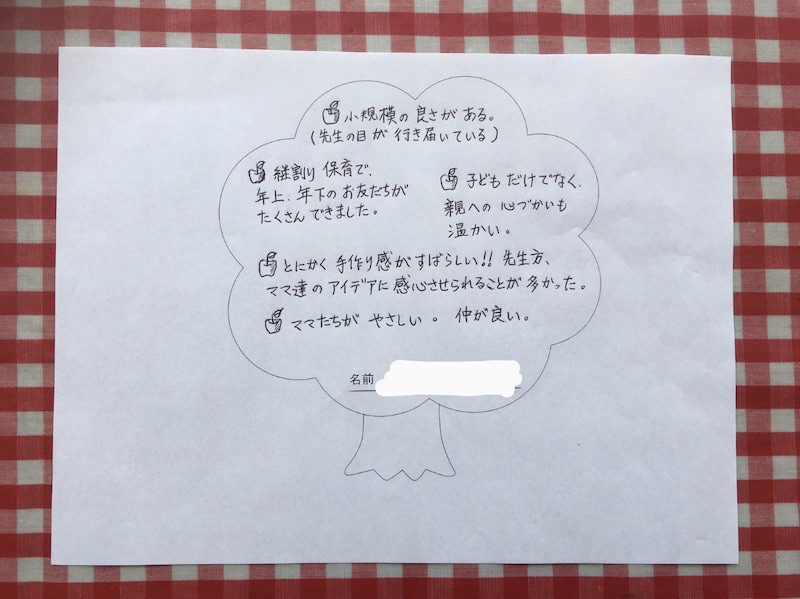 小規模の良さがある。
(先生の目が行き届いている)
縦割り保育で、
年上、年下のお友だちが
たくさんできました。
子どもだけでなく、
親への心づかいも
温かい。
とにかく手作り感がすばらしい!! 先生方、
ママ達のアイデアに感心させられることが多かった。
ママたちがやさしい。仲が良い。
名前